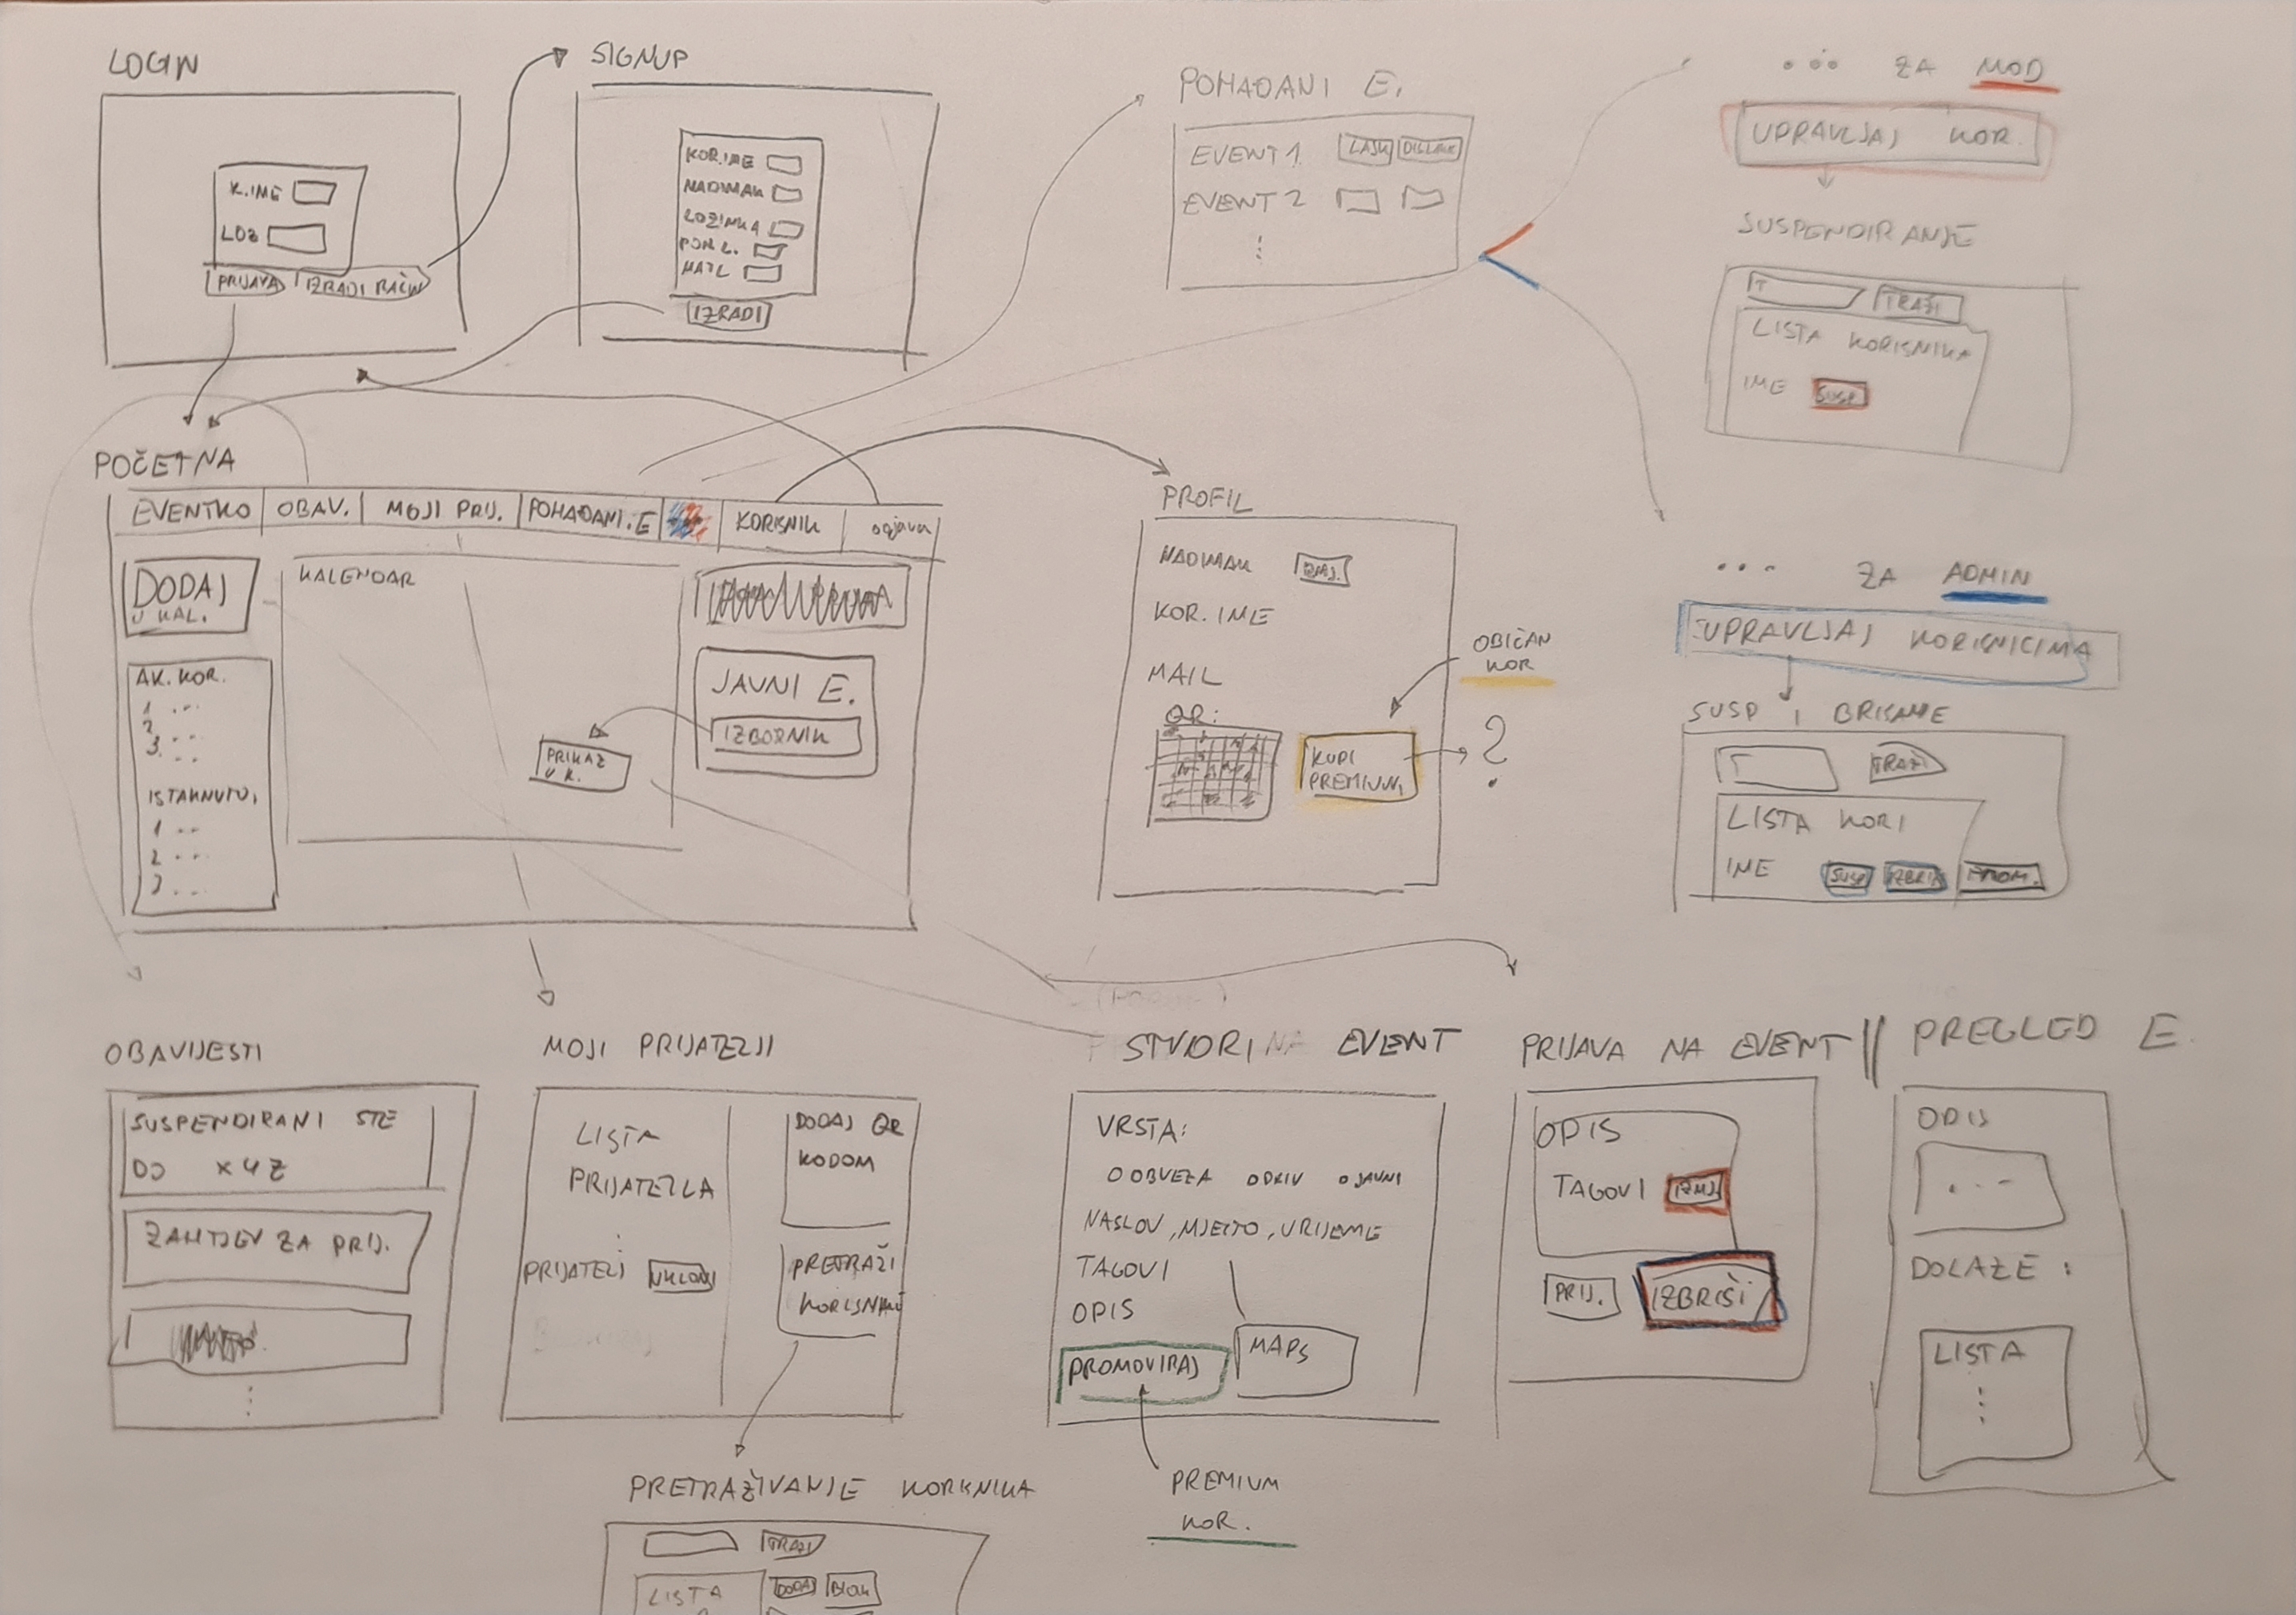 LOGIN
K.IME
LOZ
PRIJAVA
IZRADI RAČUN
SIGNUP
KOR.IME
NADIMAK
LOZINKA
PON L.
MAIL
IZRADI
POHAĐANI E.
EVENT 1
EVENT 2
ZA MOD
UPRAVLJAJ KOR.
SUSPENDIRANJE
T TRAŽI
LISTA KORISNIKA
IME SUSP.
POČETNA
EVENTKO OBAV. MOJI PRIJ. POHAĐANI.E KORISNIK odjava
DODAJ
U KAL.
KALENDAR
AK. KOR.
1
2
3.
ISTAKNUTO,
1
2
3
JAVNI E.
IZBORNIK
PRIKAZ
U K.
PROFIL
NADIMAK IZMJ.
KOR. IME
MAIL
QR:
KUPI
PREMIUM
OBIČAN
KOR
?
... ZA ADMIN
UPRAVLJAJ KORISNICIMA
SUSP I BRISANJE
T TRAŽI
LISTA KORI
IME SUSP IZBRIŠ PROM.
OBAVIJESTI
SUSPENDIRANI STE
DO X Y Z
ZAHTJEV ZA PRIJ.
MOJI PRIJATELJI
LISTA
PRIJATELJA
PRIJATELJ UKLONI
DODAJ QR
KODOM
PRETRAŽI
KORISNIKE
PRETRAŽIVANJE KORISNIKA
TRAŽI
LISTA DODAJ BLOK
STVORI EVENT
VRSTA:
O OBVEZA O DRUŽ O JAVNI
NASLOV, MJESTO, VRIJEME
TAGOVI
OPIS
PROMOVIRAJ
MAPS
PREMIUM
KOR.
PRIJAVA NA EVENT
OPIS
TAGOVI IZMJ.
PRIJ. IZBRIŠI
PREGLED E.
OPIS
...
DOLAZE :
LISTA